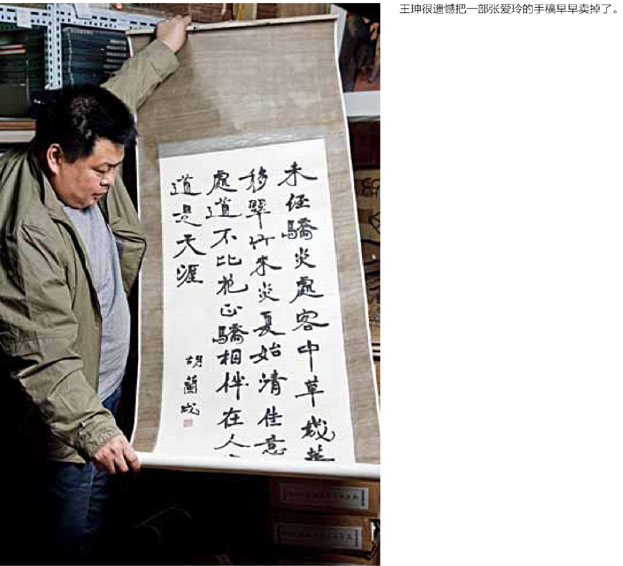 王珅很遗憾把一部张爱玲的手稿早早卖掉了。
未經驕炎處客中草
移翠竹朱炎夏始清佳意
處道不比花正驕相伴在人
道是天涯
胡蘭成